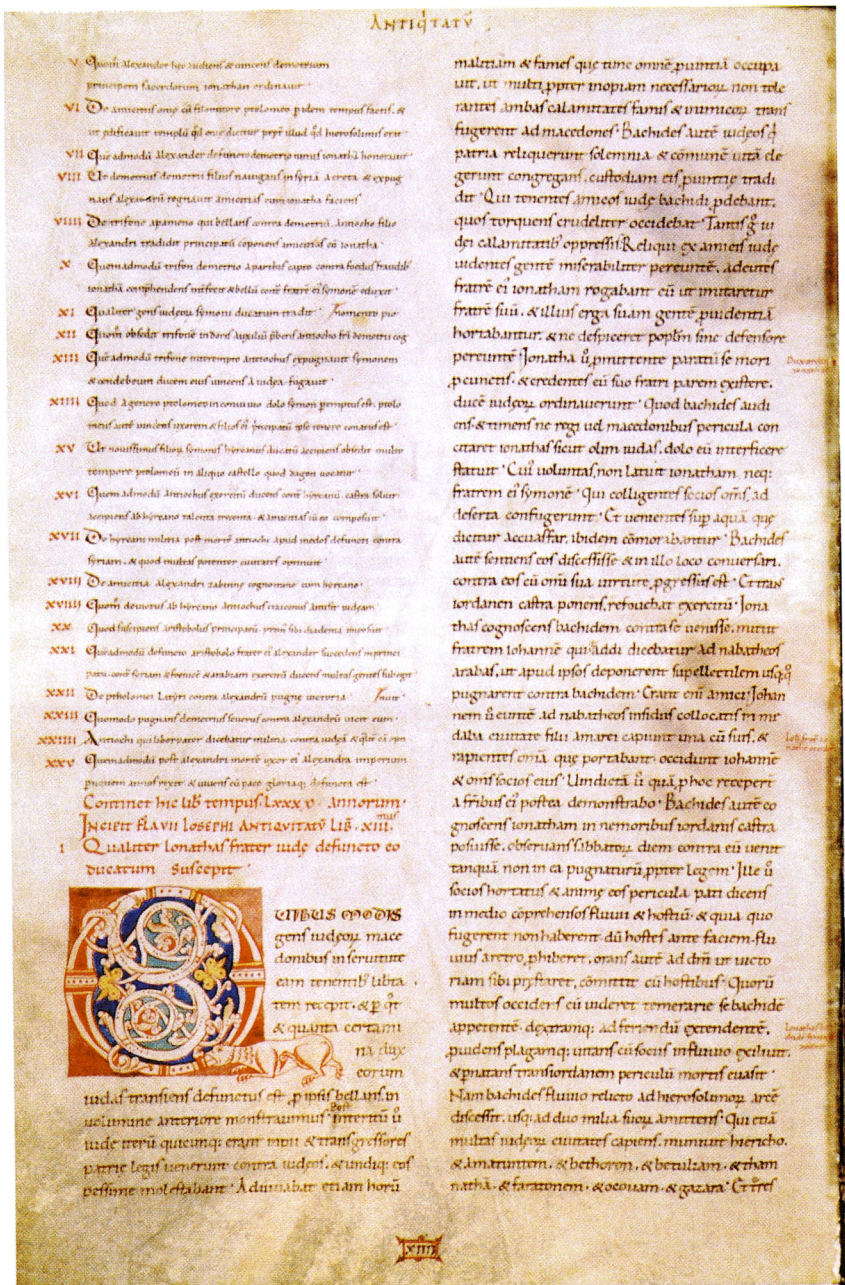 ANTIQ̇TATV̄
V Quom̄ alexander hec audiens & uincens demetrium
principem sacerdotum ionathan ordinauit
VI De amicitiis onię cū filometore ptolomeo pidem tempus factis. &
ut ędificauit templū qd̄ onię dicitur ppt̄ illud qd̄ hierosolimis erat
VII Que admodū alexander defuncto demetrio nimis ionathā honorauit
VIII Vt demetrius demetrii filius nauigans in syria a creta & expug
nans alexandrū regnauit amicitias cum ionatha faciens
VIIII De trifone apameno qui bellans contra demetriū. antiocho filio
alexandri tradidit principatū coponens amicitias cū ionatha
X Quemadmodū trifon demetrio a parthis capto contra foedus fraudib'
ionathā comphendens interfecit & bellū cont̄ fratrē ei' symonē eduxit
XI Qualiter gens iudeoꝝ symoni ducatum tradit /nomento pio
XII Quom̄ obsedit trifonē in doris auxiliū p̄bens antiocho fr̄i demetrii cog
XIII Quē admodū trifone interempto antiochus expugnauit symonem
& cendebeum ducem eius uincens a iudea fugauit
XIIII Quod a genero ptolomeo in conuiuio dolo symon peremptus est. ptolo
meus autē uinciens uxorem & filios ei' principatū ipse tenere conatus est
XV Vt nouissimus filioꝝ symonis hyrcanus ducatū accipiens obsedit multo
tempore ptolomeū in aliquo castello quod dagon uocatur
XVI Quem admodū antiochus exercitū ducens cont̄ hyrcanū. castra soluit
accipiens ab hyrcano talenta trecenta. & amicitias cū eo composuit
XVII De hyrcani militia post mortē antiochi apud medos defuncti contra
syriam. & quod multas potenter ciuitates optinuit
XVIII De amicitia alexandri zabinę cognomine cum hyrcano
XVIIII Quom̄ deuictus ab hyrcano antiochus cizicenus amisit iudęam
XX Quod suscipiens aristobolus principatū. primū sibi diadema imposuit
XXI Que admodū defuncto aristobolo frater ei' alexander succedens in princi
patu. cont̄ syriam & foenicē & arabiam exercitū ducens multas gentes subegit
XXII De ptholomei latyri contra alexandrū pugne uictoria /nuit
XXIII Quomodo pugnans demetrius seuerus contra alexandrū uicit eum
XXIIII Antiochi qui liberpater dicebatur militia contra iudęā &
XXV Quemadmodū post alexandri mortē uxor ei' alexandra imperium
annos rexit & uiuens cū pace gloriaq; defuncta est
Continet hic lib̄ tempus. LXXXV. annorum.
INCIPIT FLAVII IOSEPHI ANTIQVITATV̄ LIB. XIII.mus
I Qualiter Ionathas frater iudę defuncto eo
ducatum suscepit
QVIBUS MODIS
gens iudęoꝝ mace
donibus in seruitute
eam tenentib' liberta
tem recepit. & p̱ qt̄
& quanta certami
na dux
eorum
iudas transiens defunctus est. p̱ ipsis bellans. in
uolumine anteriore monstrauimus. Post interitū ū
iudę iterū quicunq; erant impii & transgressores
patrię legis uenerunt contra iudęos. & undiq; eos
pessime molestabant. Adiuuabat etiam horū
malitiam & fames quę tunc omnē p̱uintiā occupa
uit. ut multi p̱pter inopiam necessarioꝝ non tole
rantes ambas calamitates famis & inimicoꝝ trans
fugerent ad macedones. Bachides autē iudęos q̇
patria reliquerunt solemnia & cōmunē uitā ele
gerunt congregans. custodiam eis p̱uintię tradi
dit. Qui tenentes amicos iudę bachidi p̱debant.
quos torquens crudeliter occidebat. Tantis g̊ iu
dęi calamitatib' oppressi. Reliqui ex amicis iudę
uidentes gentē miserabiliter pereuntē. adeuntes
fratrē ei' ionatham rogabant eū ut imitaretur
fratrē suū. & illius erga suam gentē p̱uidentiā
hortabantur. & ne despiceret popl̄m sine defensore
pereuntē. Ionatha ū p̱mittente paratū se mori
p̱ cunctis. & credentes eū suo fratri parem existere.
ducē iudęoꝝ ordinauerunt. Quod bachides audi
ens. & timens ne regi uel macedonibus pericula con
citaret ionathas sicut olim iudas. dolo eū interficere
statuit. Cui' uoluntas. non latuit ionatham. neq;
fratrem ei' symonē. Qui colligentes socios om̄s. ad
deserta confugerunt. Et uenientes sup̱ aquā quę
dicitur accuasfar. ibidem cōmorabantur. Bachides
autē sentiens eos discessisse & in illo loco conuersari.
contra eos cū omī sua uirtute p̱gressus est. Et trans
iordanen castra ponens. refouebat exercitū. Iona
thas cognoscens bachidem contra se uenisse. mittit
fratrem iohannē qui & addi dicebatur ad nabatheos
arabas. ut apud ipsos deponerent supellectilem usq; q̊
pugnarent contra bachidem. Erant eni amici. Iohan
nem ū euntē ad nabatheos insidiis collocatis ex mi
daba ciuitate filii amarei capiunt una cū suis. &
rapientes omīa quę portabant. occidunt iohannē
& om̄s socios eius. Vindictā ū quā p̱ hoc receperit
a fr̄ibus ei' postea demonstrabo. Bachides autē co
gnoscens ionatham in nemoribus iordanis castra
posuisse. obseruans sabbatoꝝ diem contra eū uenit
tanquā non in ea pugnaturū p̱pter legem. Ille ū
socios hortatus & animę eos pericula pati dicens
in medio cōprehensos fluuii & hostiū. & quia quo
fugerent non haberent. dū hostes ante faciem. flu
uius a retro. p̱hiberet. orans autē ad dm̄ ut uicto
riam sibi pręstaret. cōmittit cū hostibus. Quorū
multos occidens cū uideret temerarie se bachidē
appetentē. dextramq; ad feriendū extendentē.
p̱uidens plagamq; uitans cū sociis in fluuio exiliuit.
& pnatans trans iordanem periculū mortis euasit.
Nam bachides fluuio relicto ad hierosolimoꝝ arcē
discessit. usq; ad duo milia suoꝝ amittens. Qui etiā
multas iudęoꝝ ciuitates capiens. muniuit hiericho.
& amatuntem. & bethoron. & betuliam. & tham
natha. & faratonem. & ocouam. & gazara. Et tres
XIIII